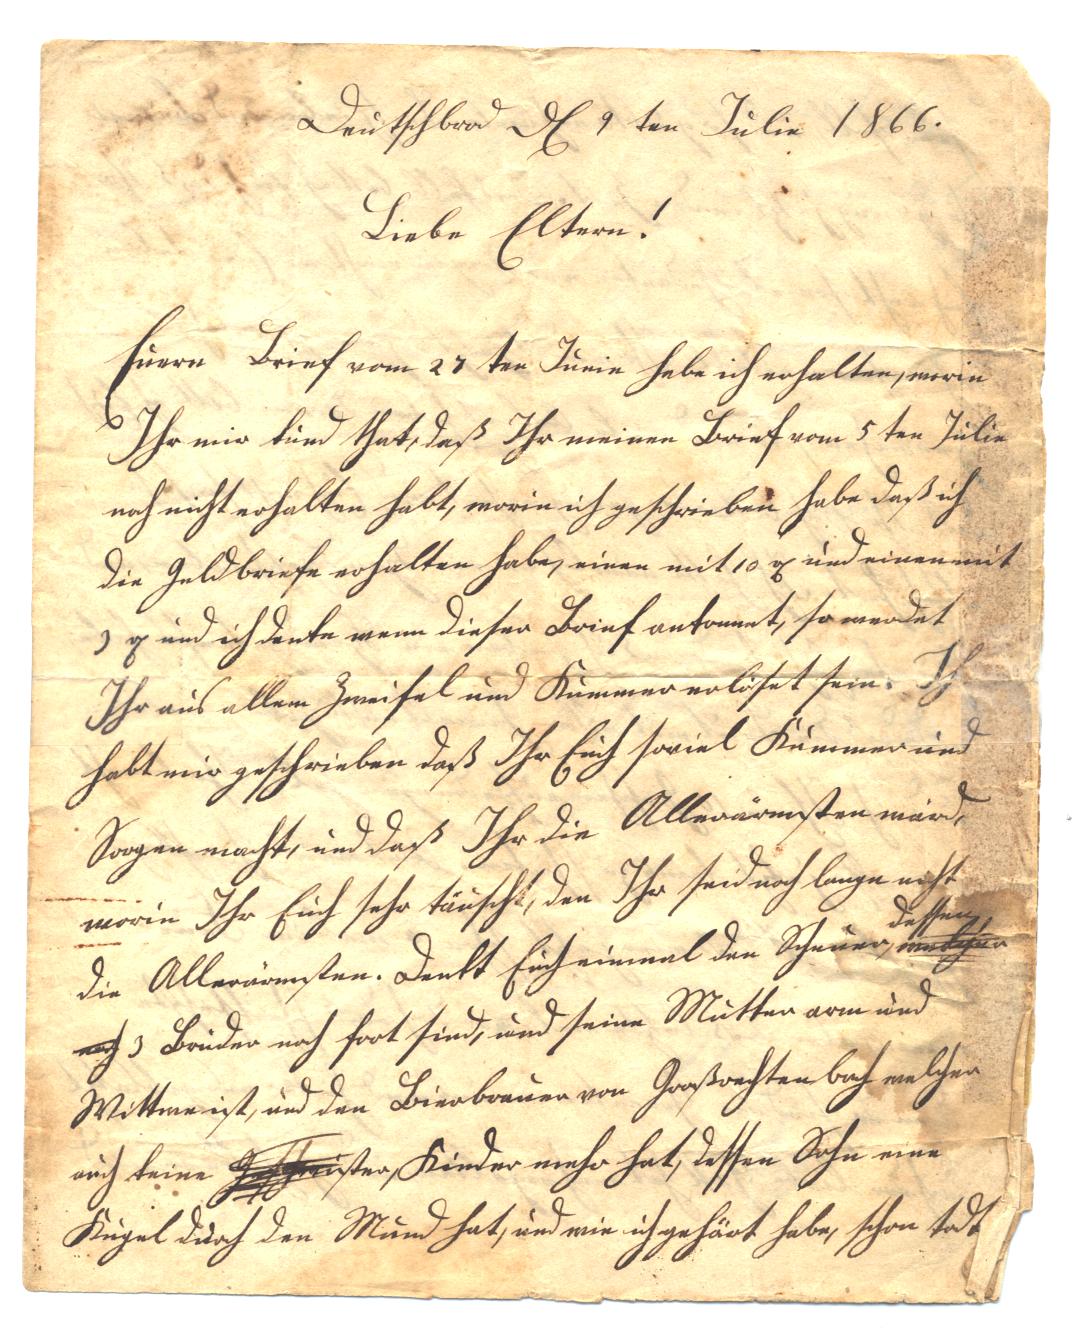 Deutschbrod d 9 ten Julie 1866.
Liebe Eltern!
Euern Brief vom 27 ten Junie habe ich erhalten, worin
Ihr mir kund that, daß Ihr meinen Brief vom 5 ten Julie
noch nicht erhalten habt, worin ich geschrieben habe daß ich
die Geldbriefe erhalten habe, einen mit 10 und einen mit
3 und ich denke wenn dieser Brief ankommt, so werdet
Ihr aus allem Zweifel und Kummer erlöset sein. Ih
habt mir geschrieben daß Ihr Euch soviel Kummer und
Sorgen macht, und daß Ihr die Allerärmsten wärd,
worin Ihr Euch sehr täuscht, den Ihr seid noch lange nicht
dessen
die Allerärmsten. Denkt Euch einmal den Scheuer, welcher
noch 3 Brüder noch fort sind, und seine Mutter arm und
Wittwe ist, und den Bierbrauer von Großrechtenbach welcher
auch keine Kinder mehr hat, dessen Sohn eine
Kugel durch den Mund hat, und wie ich gehört habe, schon todt